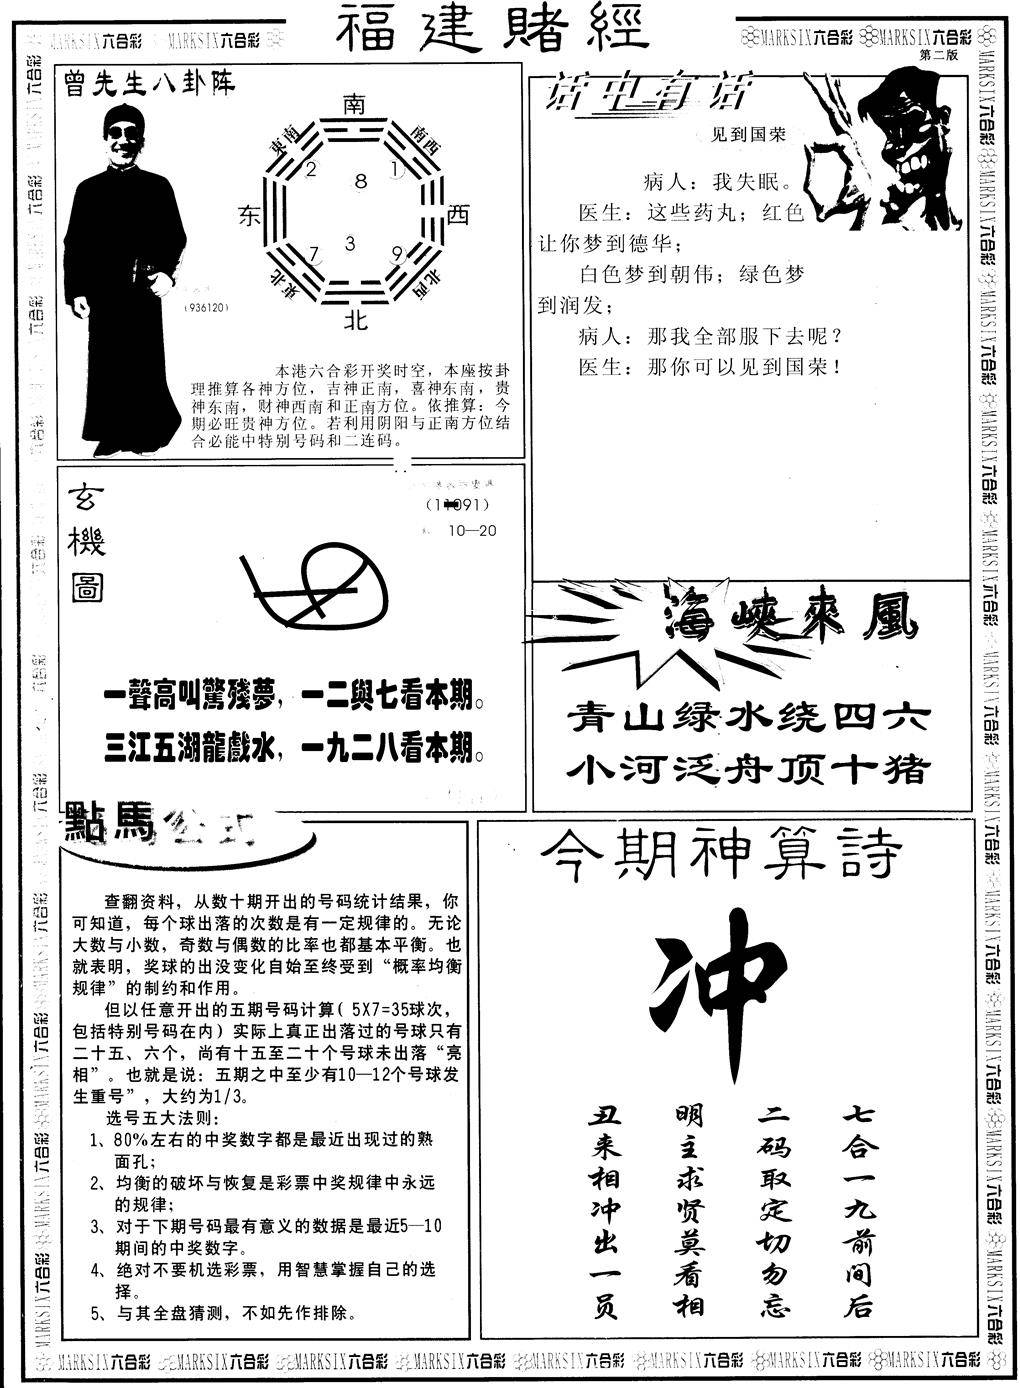 福建賭經
MARKSIX六合彩 MARKSIX六合彩
MARKSIX六合彩 MARKSIX六合彩
第二版
曾先生八卦阵
南
東南
南西
2
8
1
东
西
7
3
9
東北
北西
北
(936120)
本港六合彩开奖时空，本座按卦
理推算各神方位，吉神正南，喜神东南，贵
神东南，财神西南和正南方位。依推算：今
期必旺贵神方位。若利用阴阳与正南方位结
合必能中特别号码和二连码。
话中有话
见到国荣
病人：我失眠。
医生：这些药丸；红色
让你梦到德华；
白色梦到朝伟；绿色梦
到润发；
病人：那我全部服下去呢？
医生：那你可以见到国荣！
玄機圖
10—20
一聲高叫驚殘夢，一二與七看本期。
三江五湖龍戲水，一九二八看本期。
海峽來風
青山绿水绕四六
小河泛舟顶十猪
點馬公式
查翻资料，从数十期开出的号码统计结果，你
可知道，每个球出落的次数是有一定规律的。无论
大数与小数，奇数与偶数的比率也都基本平衡。也
就表明，奖球的出没变化自始至终受到“概率均衡
规律”的制约和作用。
但以任意开出的五期号码计算( 5X7=35球次，
包括特别号码在内）实际上真正出落过的号球只有
二十五、六个，尚有十五至二十个号球未出落“亮
相”。也就是说：五期之中至少有10—12个号球发
生重号”，大约为1/3。
选号五大法则：
1、80%左右的中奖数字都是最近出现过的熟
面孔；
2、均衡的破坏与恢复是彩票中奖规律中永远
的规律；
3、对于下期号码最有意义的数据是最近5—10
期间的中奖数字。
4、绝对不要机选彩票，用智慧掌握自己的选
择。
5、与其全盘猜测，不如先作排除。
今期神算詩
冲
七合一九前间后
二码取定切勿忘
明主求贤莫看相
丑来相冲出一员
MARKSIX六合彩 MARKSIX六合彩 MARKSIX六合彩 MARKSIX六合彩 MARKSIX六合彩 MARKSIX六合彩 MARKSIX六合彩 MARKSIX六合彩